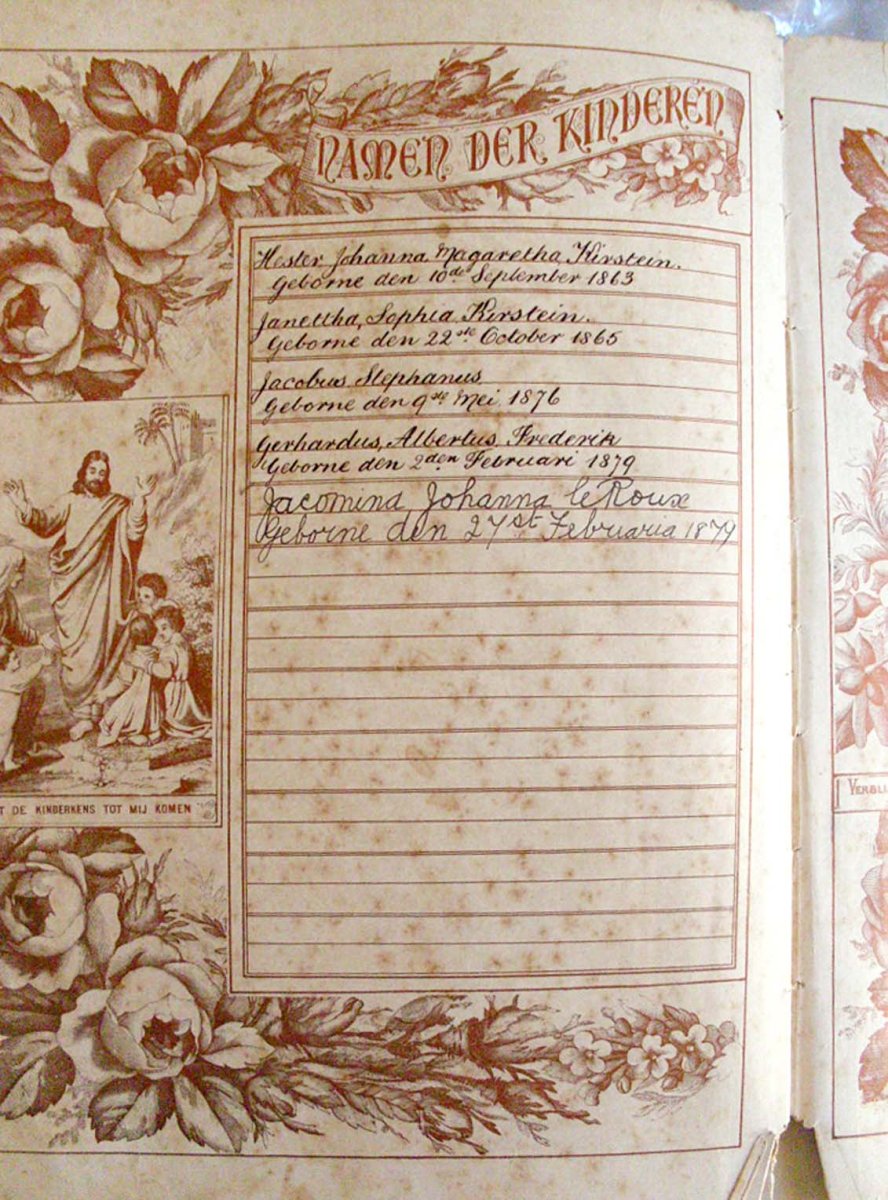 NAMEN DER KINDEREN
Hester Johanna Magaretha Kirstein.
Geborne den 10de September 1863
Janettha, Sophia Kirstein.
Geborne den 22ste October 1865
Jacobus Stephanus
Geborne den 9de Mei 1876
Gerhardus, Albertus, Frederik
Geborne den 2den Februari 1879
Jacomina Johanna le Roux
Geborne den 27st Februaria 1879
T DE KINDERKENS TOT MIJ KOMEN
VERBLI